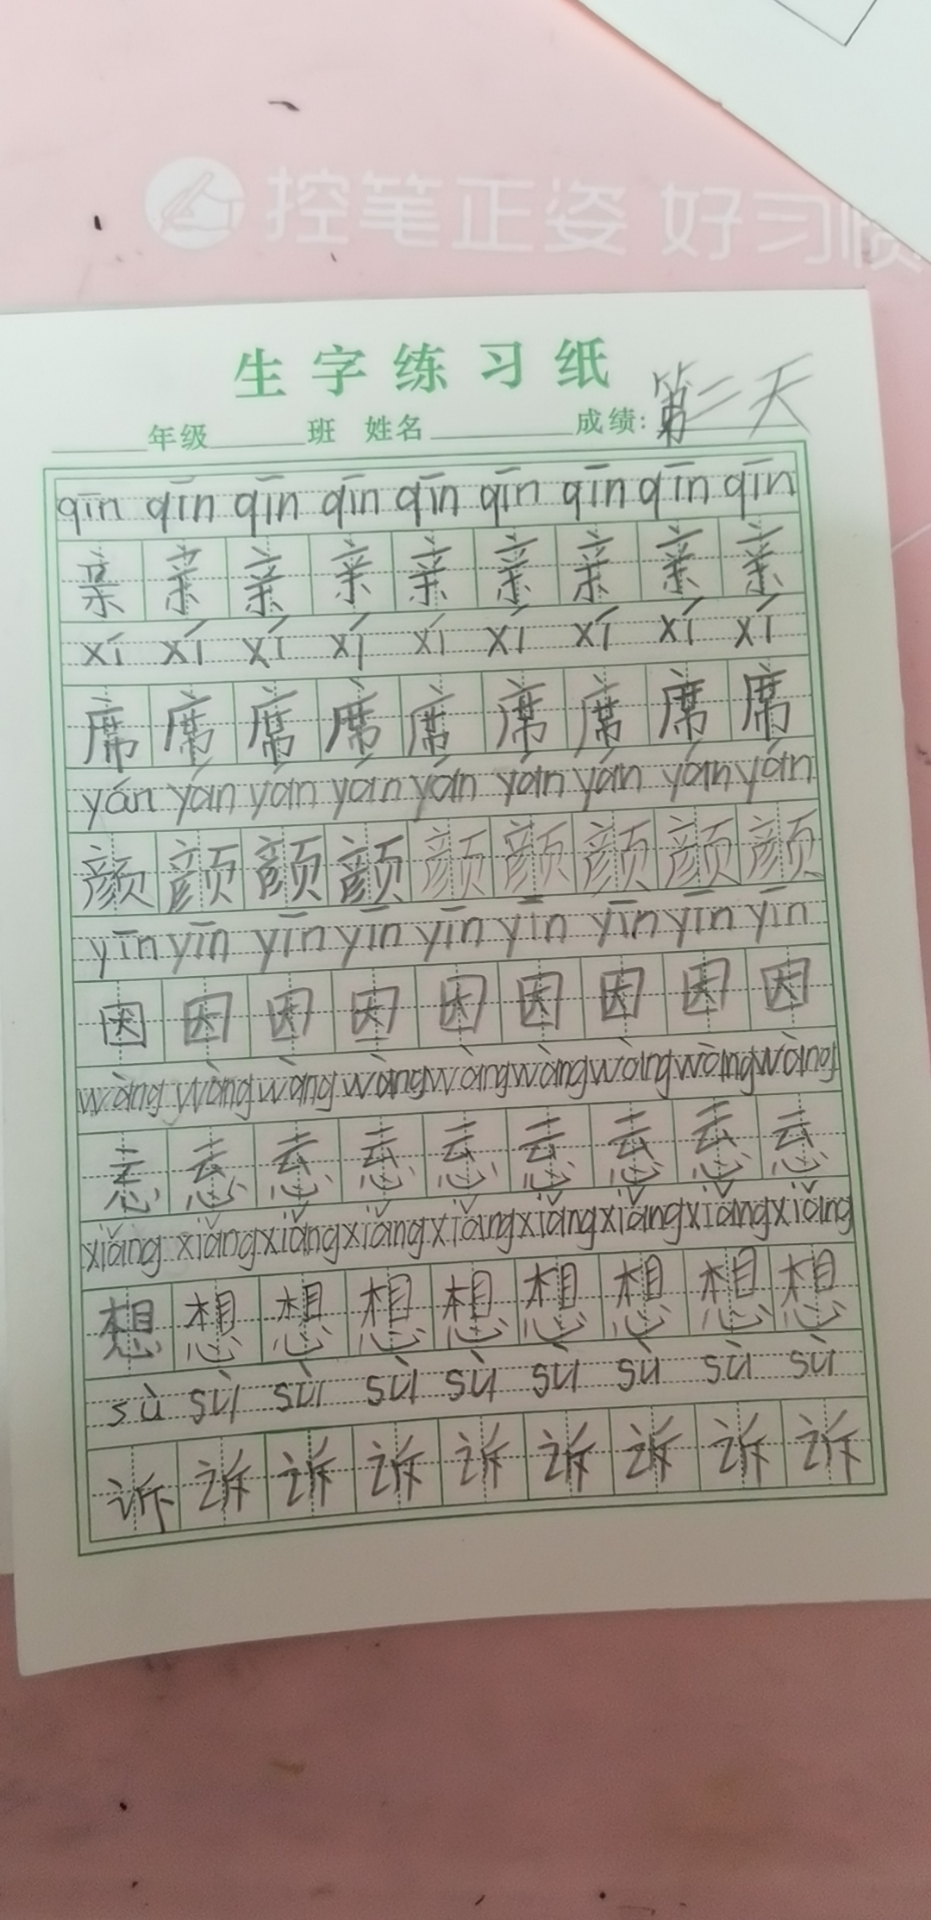 控笔正姿 好习惯
生字练习纸
年级 班 姓名 成绩: 第二天
qīn qīn qīn qīn qīn qīn qīn qīn qīn
亲 亲 亲 亲 亲 亲 亲 亲 亲
xí xí xí xí xí xí xí xí xí
席 席 席 席 席 席 席 席 席
yán yán yán yán yán yán yán yán yán
颜 颜 颜 颜 颜 颜 颜 颜 颜
yīn yīn yīn yīn yīn yīn yīn yīn yīn
因 因 因 因 因 因 因 因 因
wàng wàng wàng wàng wàng wàng wàng wàng wàng
xiǎng xiǎng xiǎng xiǎng xiǎng xiǎng xiǎng xiǎng xiǎng
想 想 想 想 想 想 想 想 想
sù sù sù sù sù sù sù sù sù
诉 诉 诉 诉 诉 诉 诉 诉 诉